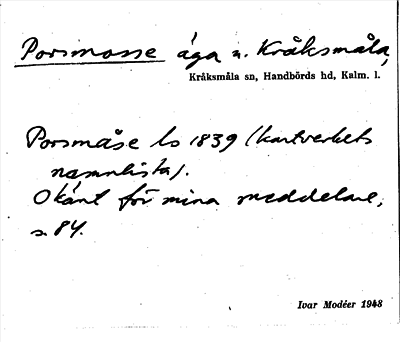 Porsmosse äga n. Kråksmåla,
Kråksmåla sn, Handbörds hd, Kalm. l.
Porsmåse ls 1839 (kartverkets
namnlista).
Okänt för mina meddelare,
s. 84.
Ivar Modéer 1948